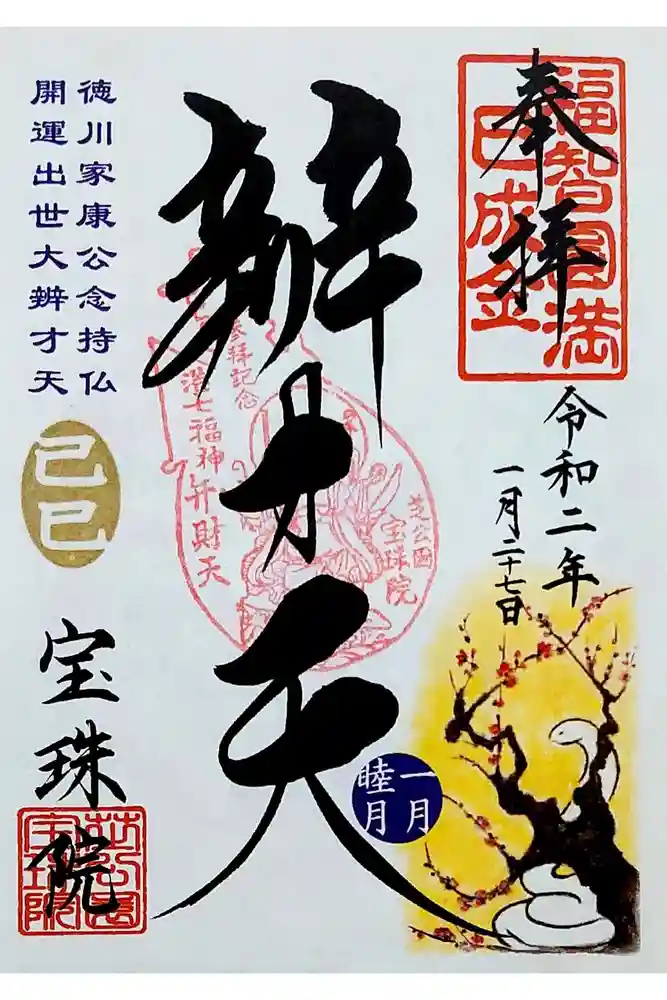 奉拝
福智円満
巳成金
令和二年
一月二十七日
辨才天
参拝記念
港七福神弁財天
芝公園
宝珠院
徳川家康公念持仏
開運出世大辨才天
己巳
一月
睦月
宝珠院
芝公園
宝珠院